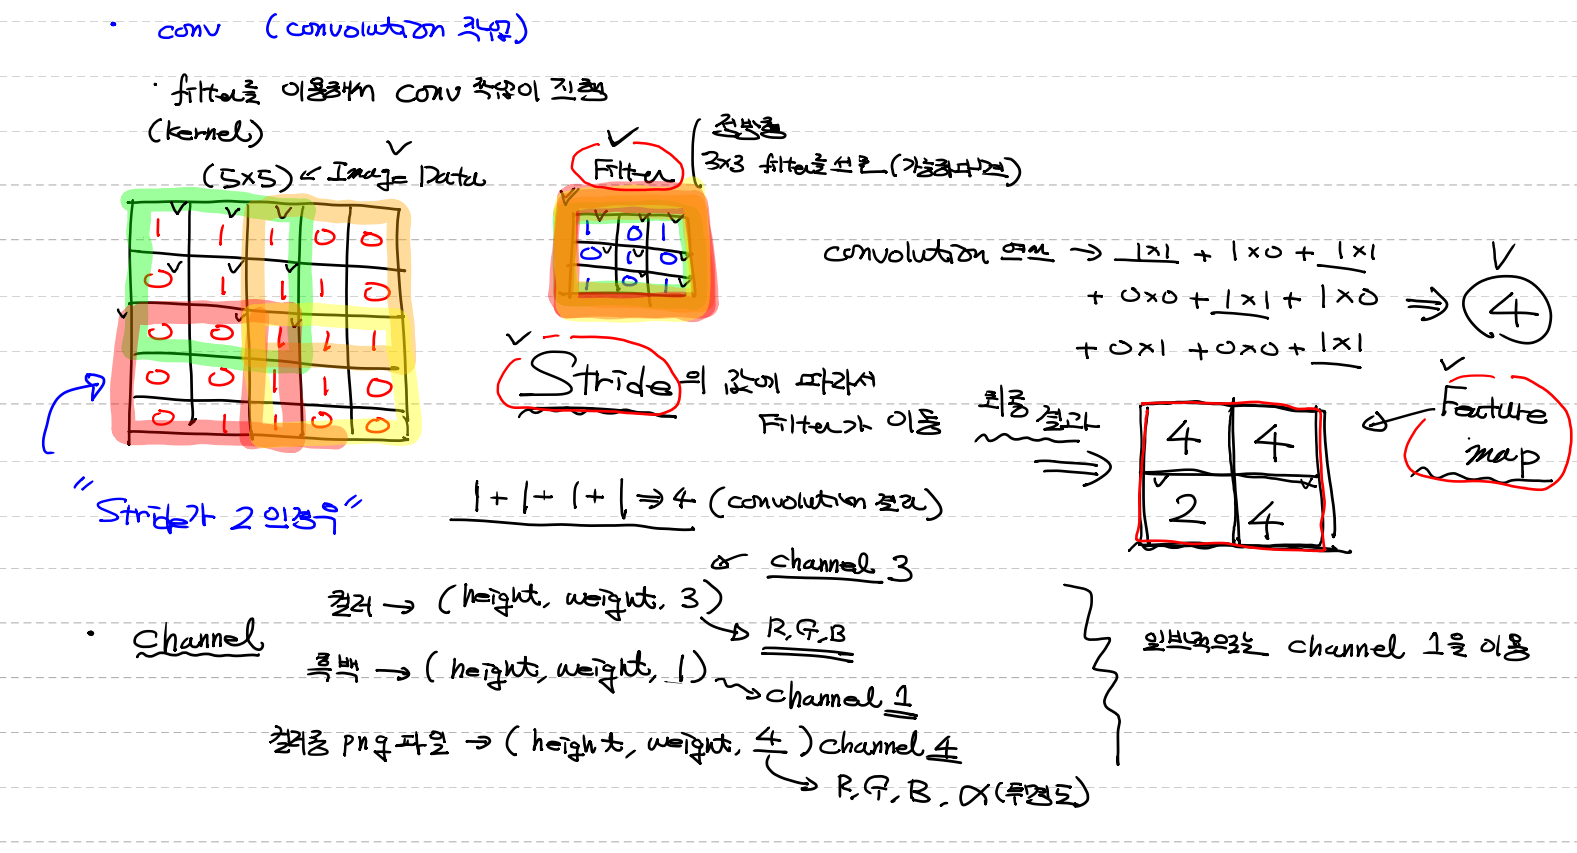 · conv (convolution 작업)
· filter를 이용해서 conv 작업이 진행
(kernel)
(5x5) ← Image Data
1 1 1 0 0
0 1 1 1 0
0 0 1 1 1
0 0 1 1 0
0 1 1 0 0
Filter
3x3 filter를 선호 (가능하다면)
1 0 1
0 1 0
1 0 1
convolution 연산 → 1x1 + 1x0 + 1x1
+ 0x0 + 1x1 + 1x0 ⇒ 4
+ 0x1 + 0x0 + 1x1
Stride의 값에 따라서
Filter가 이동
최종 결과 ⇒
4 4
2 4
← Feature
map
"Stride가 2인경우"
1 + 1 + 1 + 1 ⇒ 4 (convolution 결과)
· channel
컬러 → (height, weight, 3)
← channel 3
→ R, G, B
흑백 → (height, weight, 1) → channel 1
컬러중 png파일 → (height, weight, 4) channel 4
→ R, G, B, α(투명도)
일반적으로는 channel 1을 이용